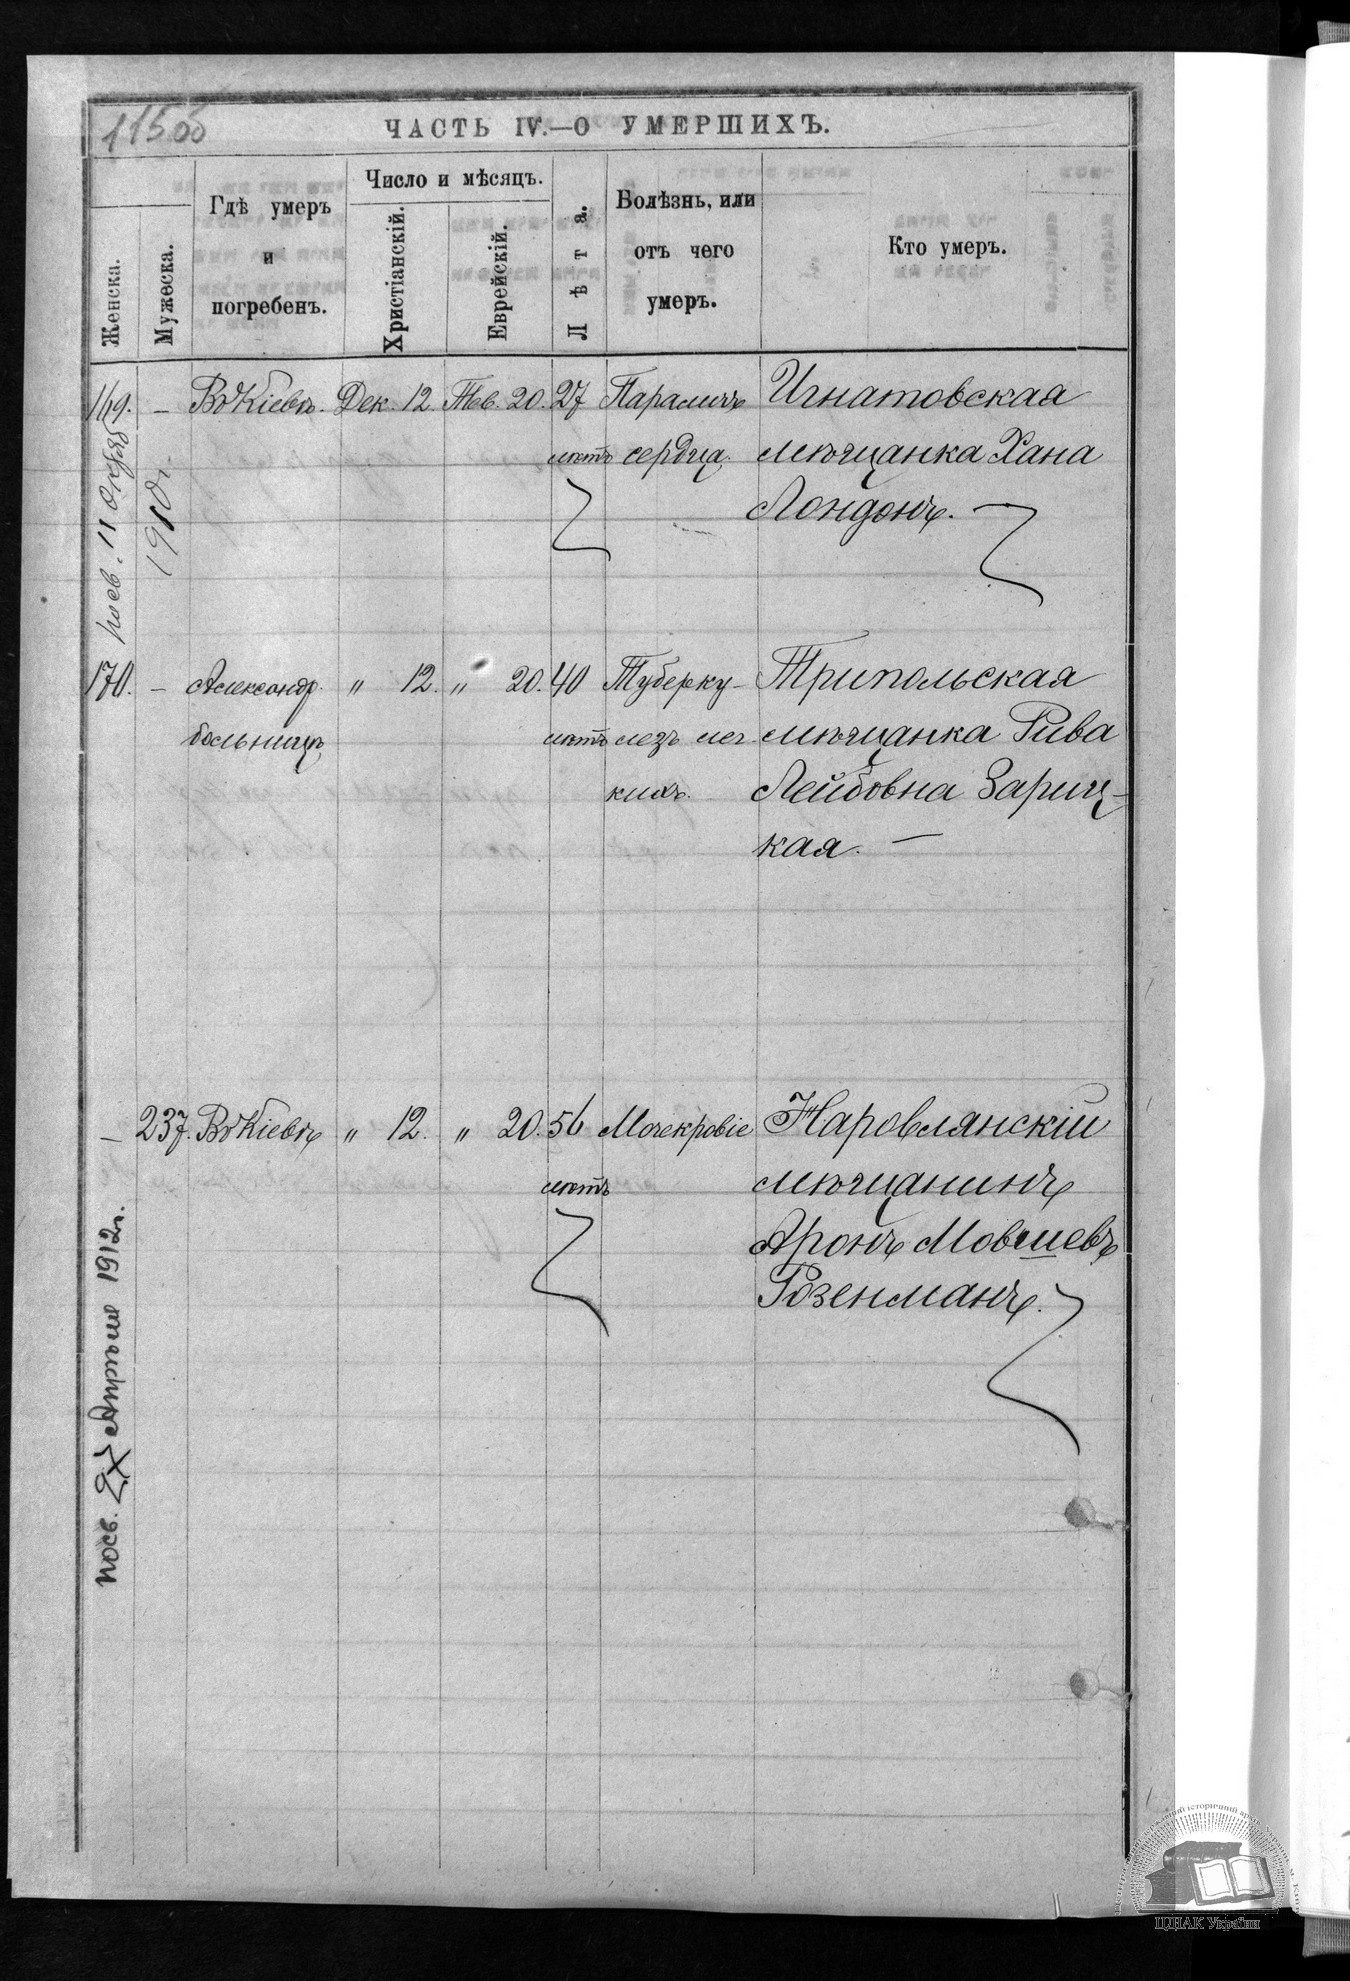 115об
ЧАСТЬ IV.—О УМЕРШИХЪ.
Женска.
Мужеска.
Гдѣ умеръ
и
погребенъ.
Число и мѣсяцъ.
Христіанскій.
Еврейскій.
Лѣта.
Болѣзнь, или
отъ чего
умеръ.
Кто умеръ.
169. – Въ Кіевѣ. Дек. 12. Тев. 20. 27 Параличъ Игнатовская
лѣтъ сердца. мѣщанка Хана
Лондонъ.
11
1910 г.
170. – Александр. " 12. " 20. 40 Туберку- Трипольская
больницѣ лѣтъ лезъ лег- мѣщанка Рива
кихъ. Лейбовна Зариц-
кая. —
– 237. Въ Кіевѣ " 12. " 20. 56 Мочекровіе Наровлянскій
лѣтъ мѣщанинъ
Аронъ Мовшевъ
Розенманъ.
посв. Апрѣля 1912 г.
ЦДІАК України